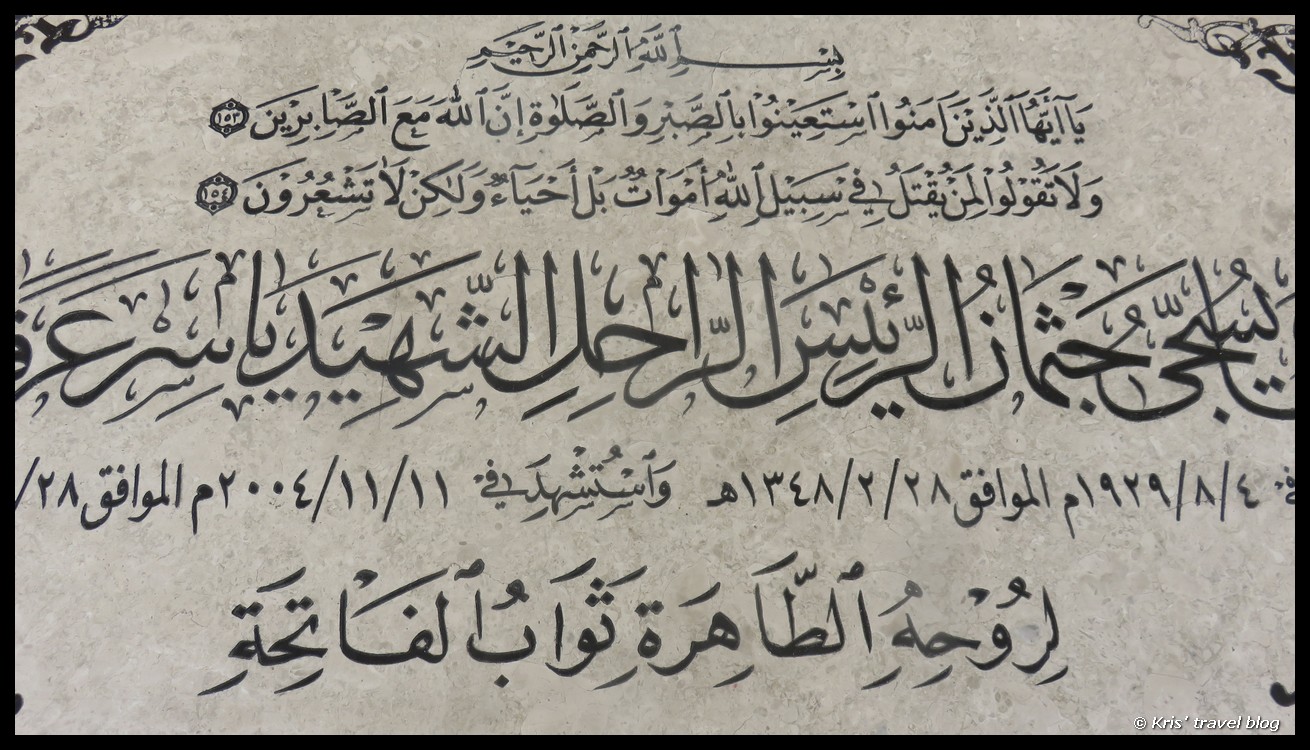 بِسْمِ ٱللَّهِ ٱلرَّحْمٰنِ ٱلرَّحِيْمِ
يَا أَيُّهَا ٱلَّذِيْنَ ءَامَنُوا ٱسْتَعِيْنُوْا بِٱلصَّبْرِ وَٱلصَّلَوٰةِ إِنَّ ٱللّٰهَ مَعَ ٱلصَّابِرِيْنَ ١٥٣
وَلَا تَقُوْلُوْا لِمَنْ يُقْتَلُ فِيْ سَبِيْلِ ٱللّٰهِ أَمْوَاتٌ بَلْ أَحْيَآءٌ وَلٰكِنْ لَا تَشْعُرُوْنَ ١٥٤
يُسَجَّى جُثْمَانُ الرَّئِيْسِ الرَّاحِلِ الشَّهِيْدِ يَاسِرْ
٤/٨/١٩٢٩م الموافق ٢٨/٢/١٣٤٨هـ وَٱسْتُشْهِدَ فِيْ ١١/١١/٢٠٠٤م الموافق ٢٨/
لِرُوْحِهِ ٱلطَّاهِرَةِ ثَوَابُ ٱلفَاتِحَةِ
© Kris' travel blog